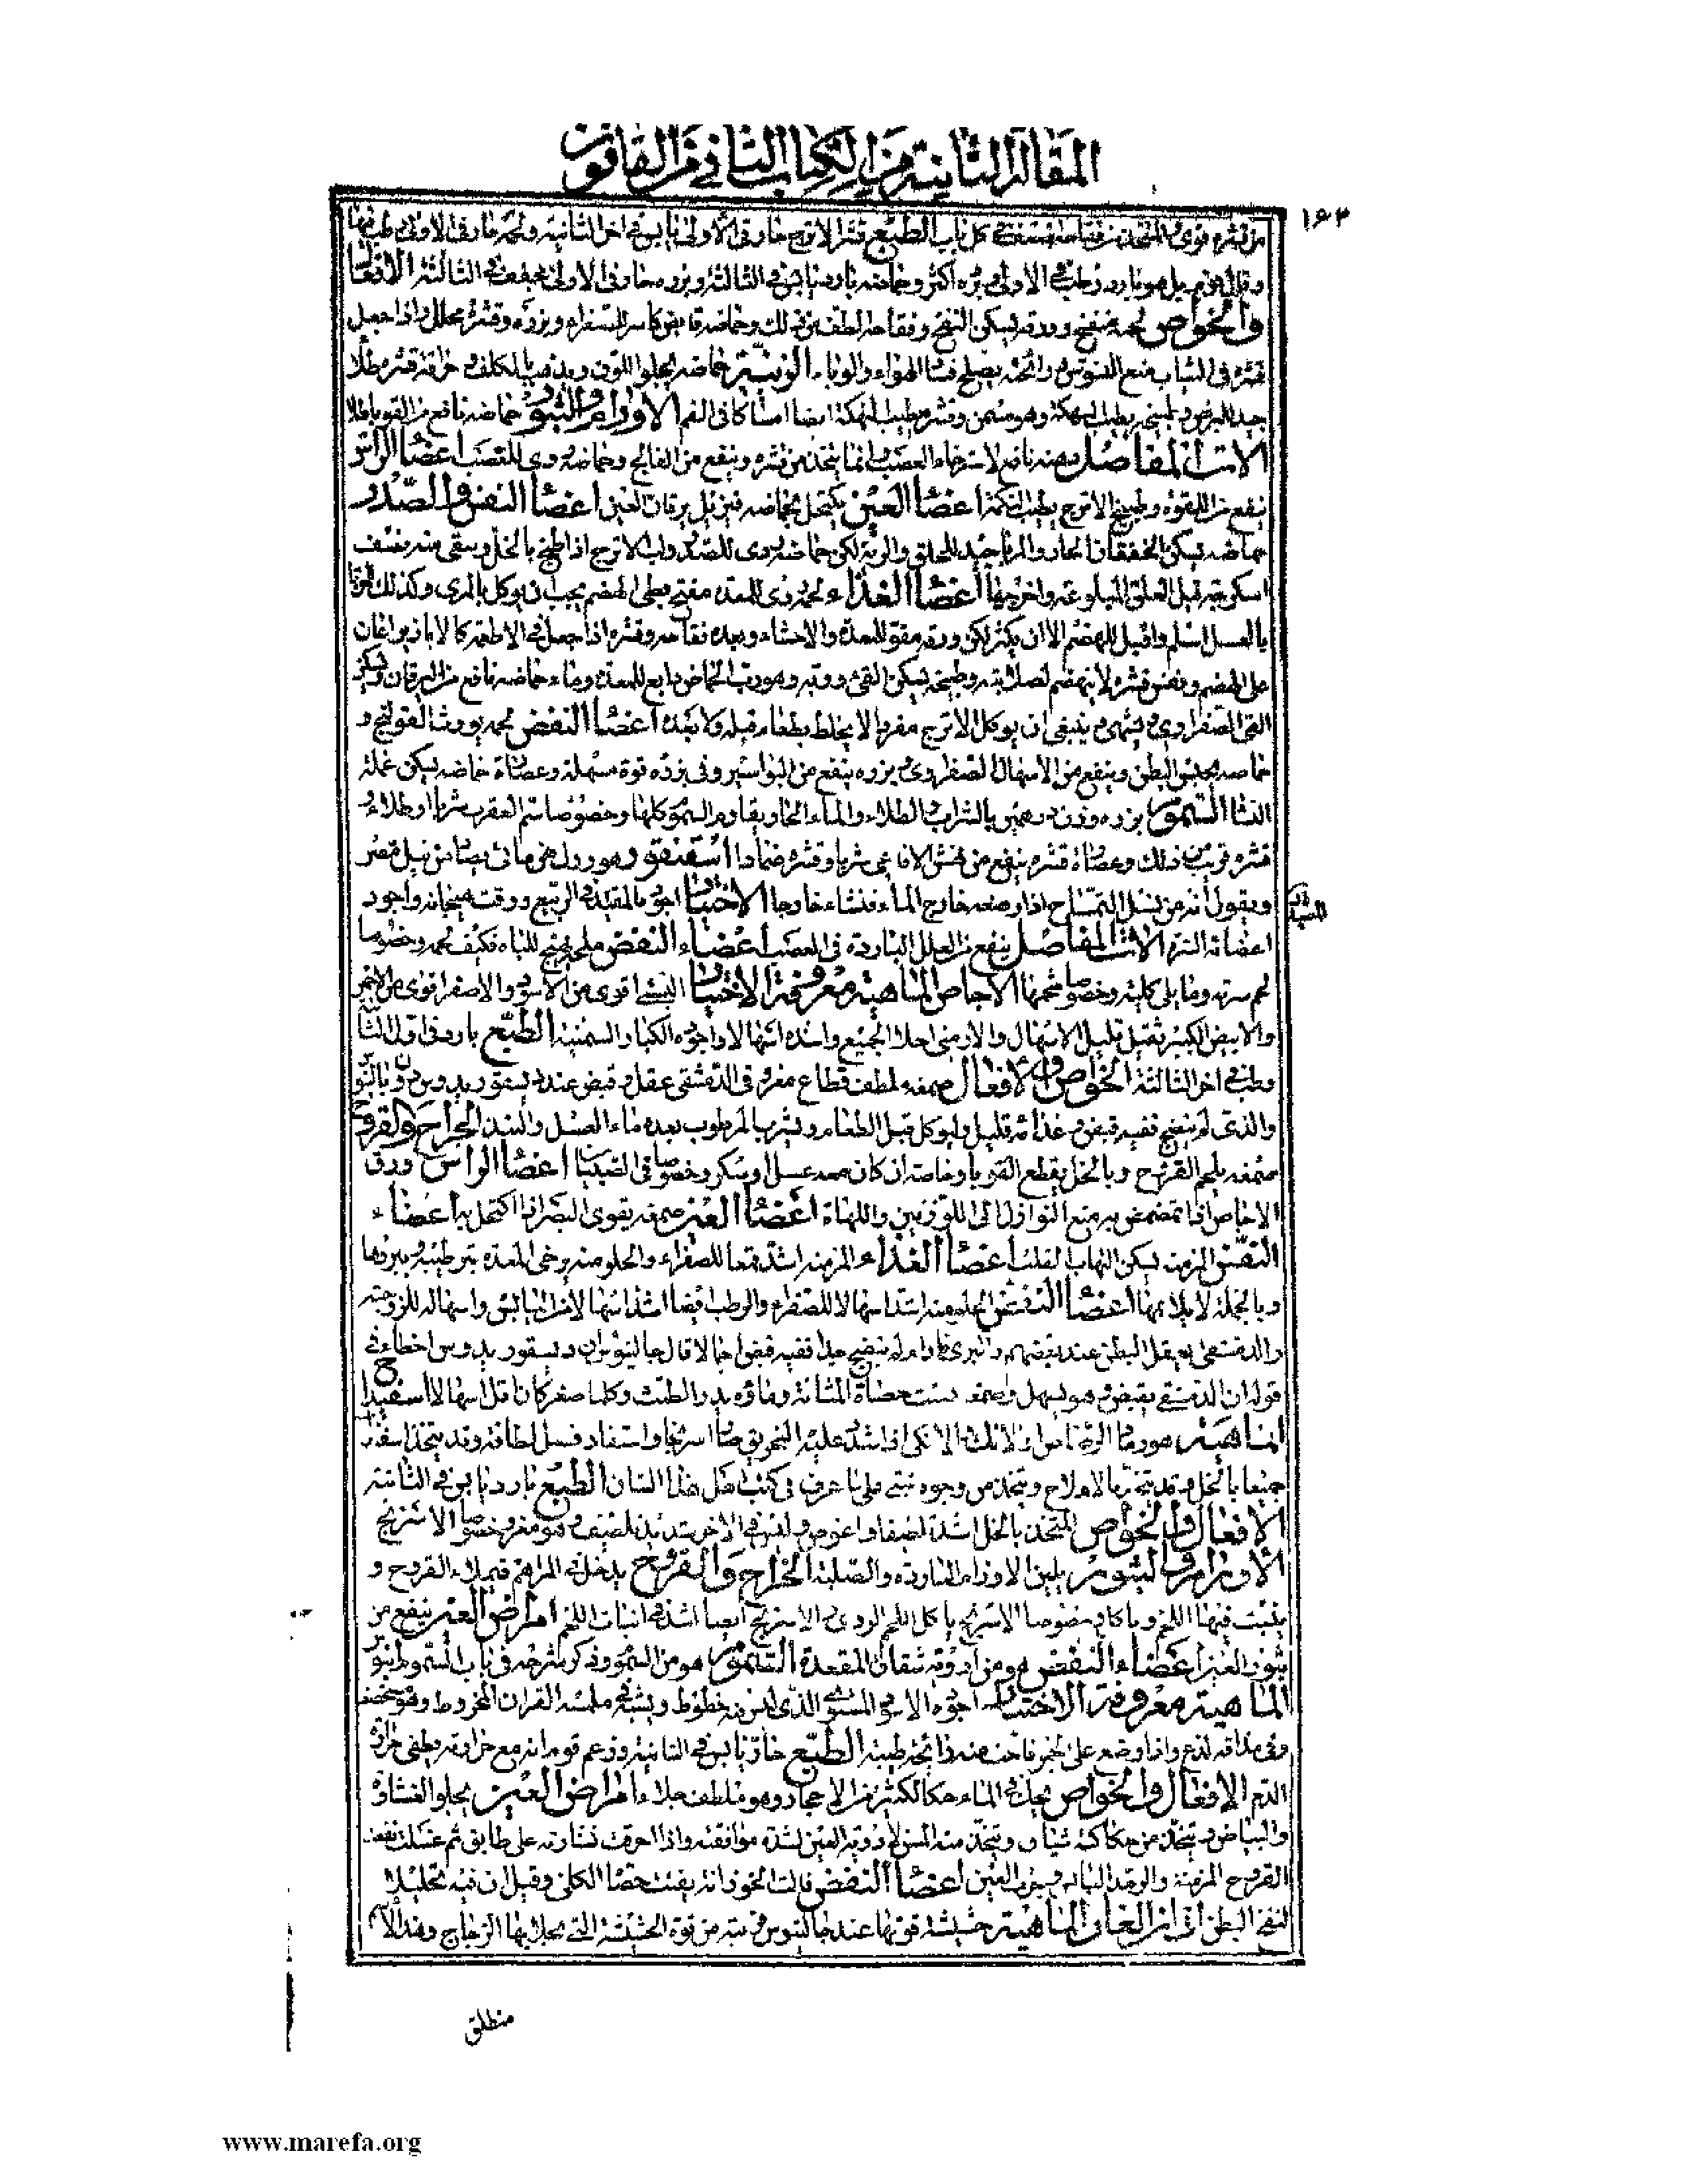 المقالة الثانية من الكتاب الثاني من القانون
١٤٣
من قشره قوى المتخذ من فقاحه استقصى كل باب الطبع قشر الاترج حار في الاولى يابس في اخر الثانية ولحمه حار في الاولى رطب فيها
وقال قوم بل هو بارد رطب في الاولى وبرده اكثر وحماضه بارد يابس في الثالثة وبزره حار في الاولى مجفف في الثالثة الافعال
والخواص لحمه منفخ وورقه يسكن النفخ وفقاحه الطف من ذلك وحماضه قابض كاسر للصفراء وبزره وقشره محلل واذا جعل
قشره في الثياب منع التسوس ورائحته يصلح فساد الهواء والوباء الزينة حماضه يجلو اللون ويذهب بالكلف وحراقة قشره طلاء
جيد للبرص وطبيخه يطيب النكهة وهو مسمن وقشره يطيب النكهة ايضا امساكا في الفم الاورام والبثور حماضه نافع من القوبا طلاء
الات المفاصل دهنه نافع لاسترخاء العصب وانما يتخذ من قشره وينفع من الفالج وحماضه ردى للعصب اعضاء الراس
ينفع من اللقوة وطبيخ الاترج يطيب النكهة اعضاء العين يكتحل بحماضه فيزيل يرقان العين اعضاء النفس والصدر
حماضه يسكن الخفقان الحار والمربا جيد للحلق والرية لكن حماضه ردى للصدر ولب الاترج اذا طبخ بالخل وسقى منه نصف
اسكرجة قتل العلق المبلوعة واخرجها اعضاء الغذاء لحمه ردى للمعدة منفخ بطى الهضم يجب ان يوكل بالمرى وكذلك المربا
بالعسل اسلم واقبل للهضم الا ان يكثر لكن ورقه مقو للمعدة والاحشاء وبعده فقاحه وقشره اذا جعل في الاطعمة كالابازير اعان
على الهضم ونفس قشره لا ينهضم لصلابته وطبيخه يسكن القى وربه وهو رب الحماض دابغ للمعدة وماء حماضه نافع من اليرقان ويسكن
القى الصفراوى ويشهى وينبغي ان يوكل الاترج مفردا لا يخلط بطعام قبله ولا بعده اعضاء النفض لحمه يورث القولنج و
حماضه يحبس البطن وينفع من الاسهال الصفراوى وبزره ينفع من البواسير وفي بزره قوة مسهلة وعصارة حماضه يسكن غلمة
النسا السموم بزره وزن درهمين بالشراب والطلاء والماء الحار يقاوم السموم كلها وخصوصا سم العقرب شربا وطلاء و
قشره قريب من ذلك وعصارة قشره ينفع من نهش الافاعي شربا وقشره ضمادا اسقنقور هو ورل مائى يصاد من نيل مصر
ويقولون انه من نسل التمساح اذا وضعه خارج الماء فنشاء خارجا الاختيار اجوده المصيد في الربيع ووقت هيجانه واجود
المصيد
اعضائه السرة الات المفاصل ينفع من العلل الباردة في العصب اعضاء النفض ملحه يهيج الباه فكيف لحمه وخصوصا
لحم سرته وما يلى كليته وخصوصا شحمها الاجاص الماهية معروفة الاختيار البستى اقوى من الاسود والاصفر اقوى من الاحمر
والابيض الكبير ثقيل قليل الاسهال والارمنى احلى الجميع واشده اسهالا واجوده الكبار السمينة الطبع بارد في اول الثانية
رطب في اخر الثالثة الخواص والافعال صمغه ملطف قطاع مغر وفي الدمشقى عقل وقبض عند ديسقوريدوس دون جالينوس
والذى لم ينضج ففيه قبض وغذائه قليل وليوكل قبل الطعام ويشرب المرطوب بعده ماء العسل والنبيذ الجراح والقروح
صمغه يلحم القروح وبالخل يقطع القوبا وخاصة ان كان معه عسل او سكر وخصوصا في الصبيان اعضاء الراس ورق
الاجاص اذا تمضمض به منع النوازل الى اللوزتين واللهاة اعضاء العين صمغه يقوى البصر اذا اكتحل به اعضاء
النفس المزمنه يسكن التهاب القلب اعضاء الغذاء المزمنه اشد قمعا للصفراء والحلو منه يرخى المعدة بترطيبه وتبريدها
وبالجملة لا يلايمها اعضاء النفض الحلو منه اشد اسهالا للصفراء والرطب ايضا اشد اسهالا من اليابس واسهاله للزوجته
والدمشقى يعقل البطن عند بعضهم والبرى ما دام لم ينضج جيدا ففيه قبض اجمالا قال جالينوس ان ديسقوريدوس اخطاء في
قوله ان الدمشقى يقبض وهو يسهل وصمغه يفتت حصاة المثانة وماؤه يدر الطمث وكلما صغر كان اقل اسهالا اسفيداج
الماهية هو رماد الرصاص والانك الانكى اذا شد عليه التحريق صار اسرنجا واستفاد فضل لطافة وقد يتخذ اسفيداج
جميعا بالخل وقد يتخذ بالاملاح ويتخذ من وجوه شتى على ما عرف في كتب اهل هذا الشان الطبع بارد يابس في الثانية
الافعال والخواص المتخذ بالخل اشد تلطيفا واغوص وليس في الاخر شديد تلطيف وهو مغر وخصوصا الاسرنج
الاورام والبثور يلين الاورام الباردة والصلبة الجراح والقروح يدخل في المراهم فيملاء القروح و
ينبت فيها اللحم وياكله وخصوصا الاسرنج ياكل اللحم الردى والاسرنج ايضا اشد في انبات اللحم امراض العين ينفع من
بثور العين اعضاء النفض هو من ادوية شقاق المقعدة السموم هو من السموم وذكر شرحه في باب السموم ابنوس
الماهية معروفة الاختيار اجوده الاسود المستوى الذى ليس فيه خطوط ويشبه في ملمسه القرن المخروط وهو مستحصف
وفي مذاقه لذع واذا وضع على الجمر فاحت منه رائحة طيبة الطبع حار يابس في الثانية وزعم قوم انه مع حرارته يطفى حرارة
الدم الافعال والخواص يحل في الماء حكا لكثير من الاحجار وهو ملطف جلاء امراض العين يجلو الغشاوة
والبياض ويتخذ من حكاكته شياف ويتخذ منه المسن لادوية العين لشدة موافقته واذا احرقت نشارته على طابق ثم غسلت نفعت
القروح المزمنة والرمد اليابس وجرب العين اعضاء النفض قالت الخوز انه يفتت حصا الكلى وقيل ان فيه تحليلا
لنفخ البطن اذان الفار الماهية حشيشة قوتها عند جالينوس قريبة من قوة الحشيشة التى يجلى بها الزجاج وهذا الاسم
منطلق
www.marefa.org